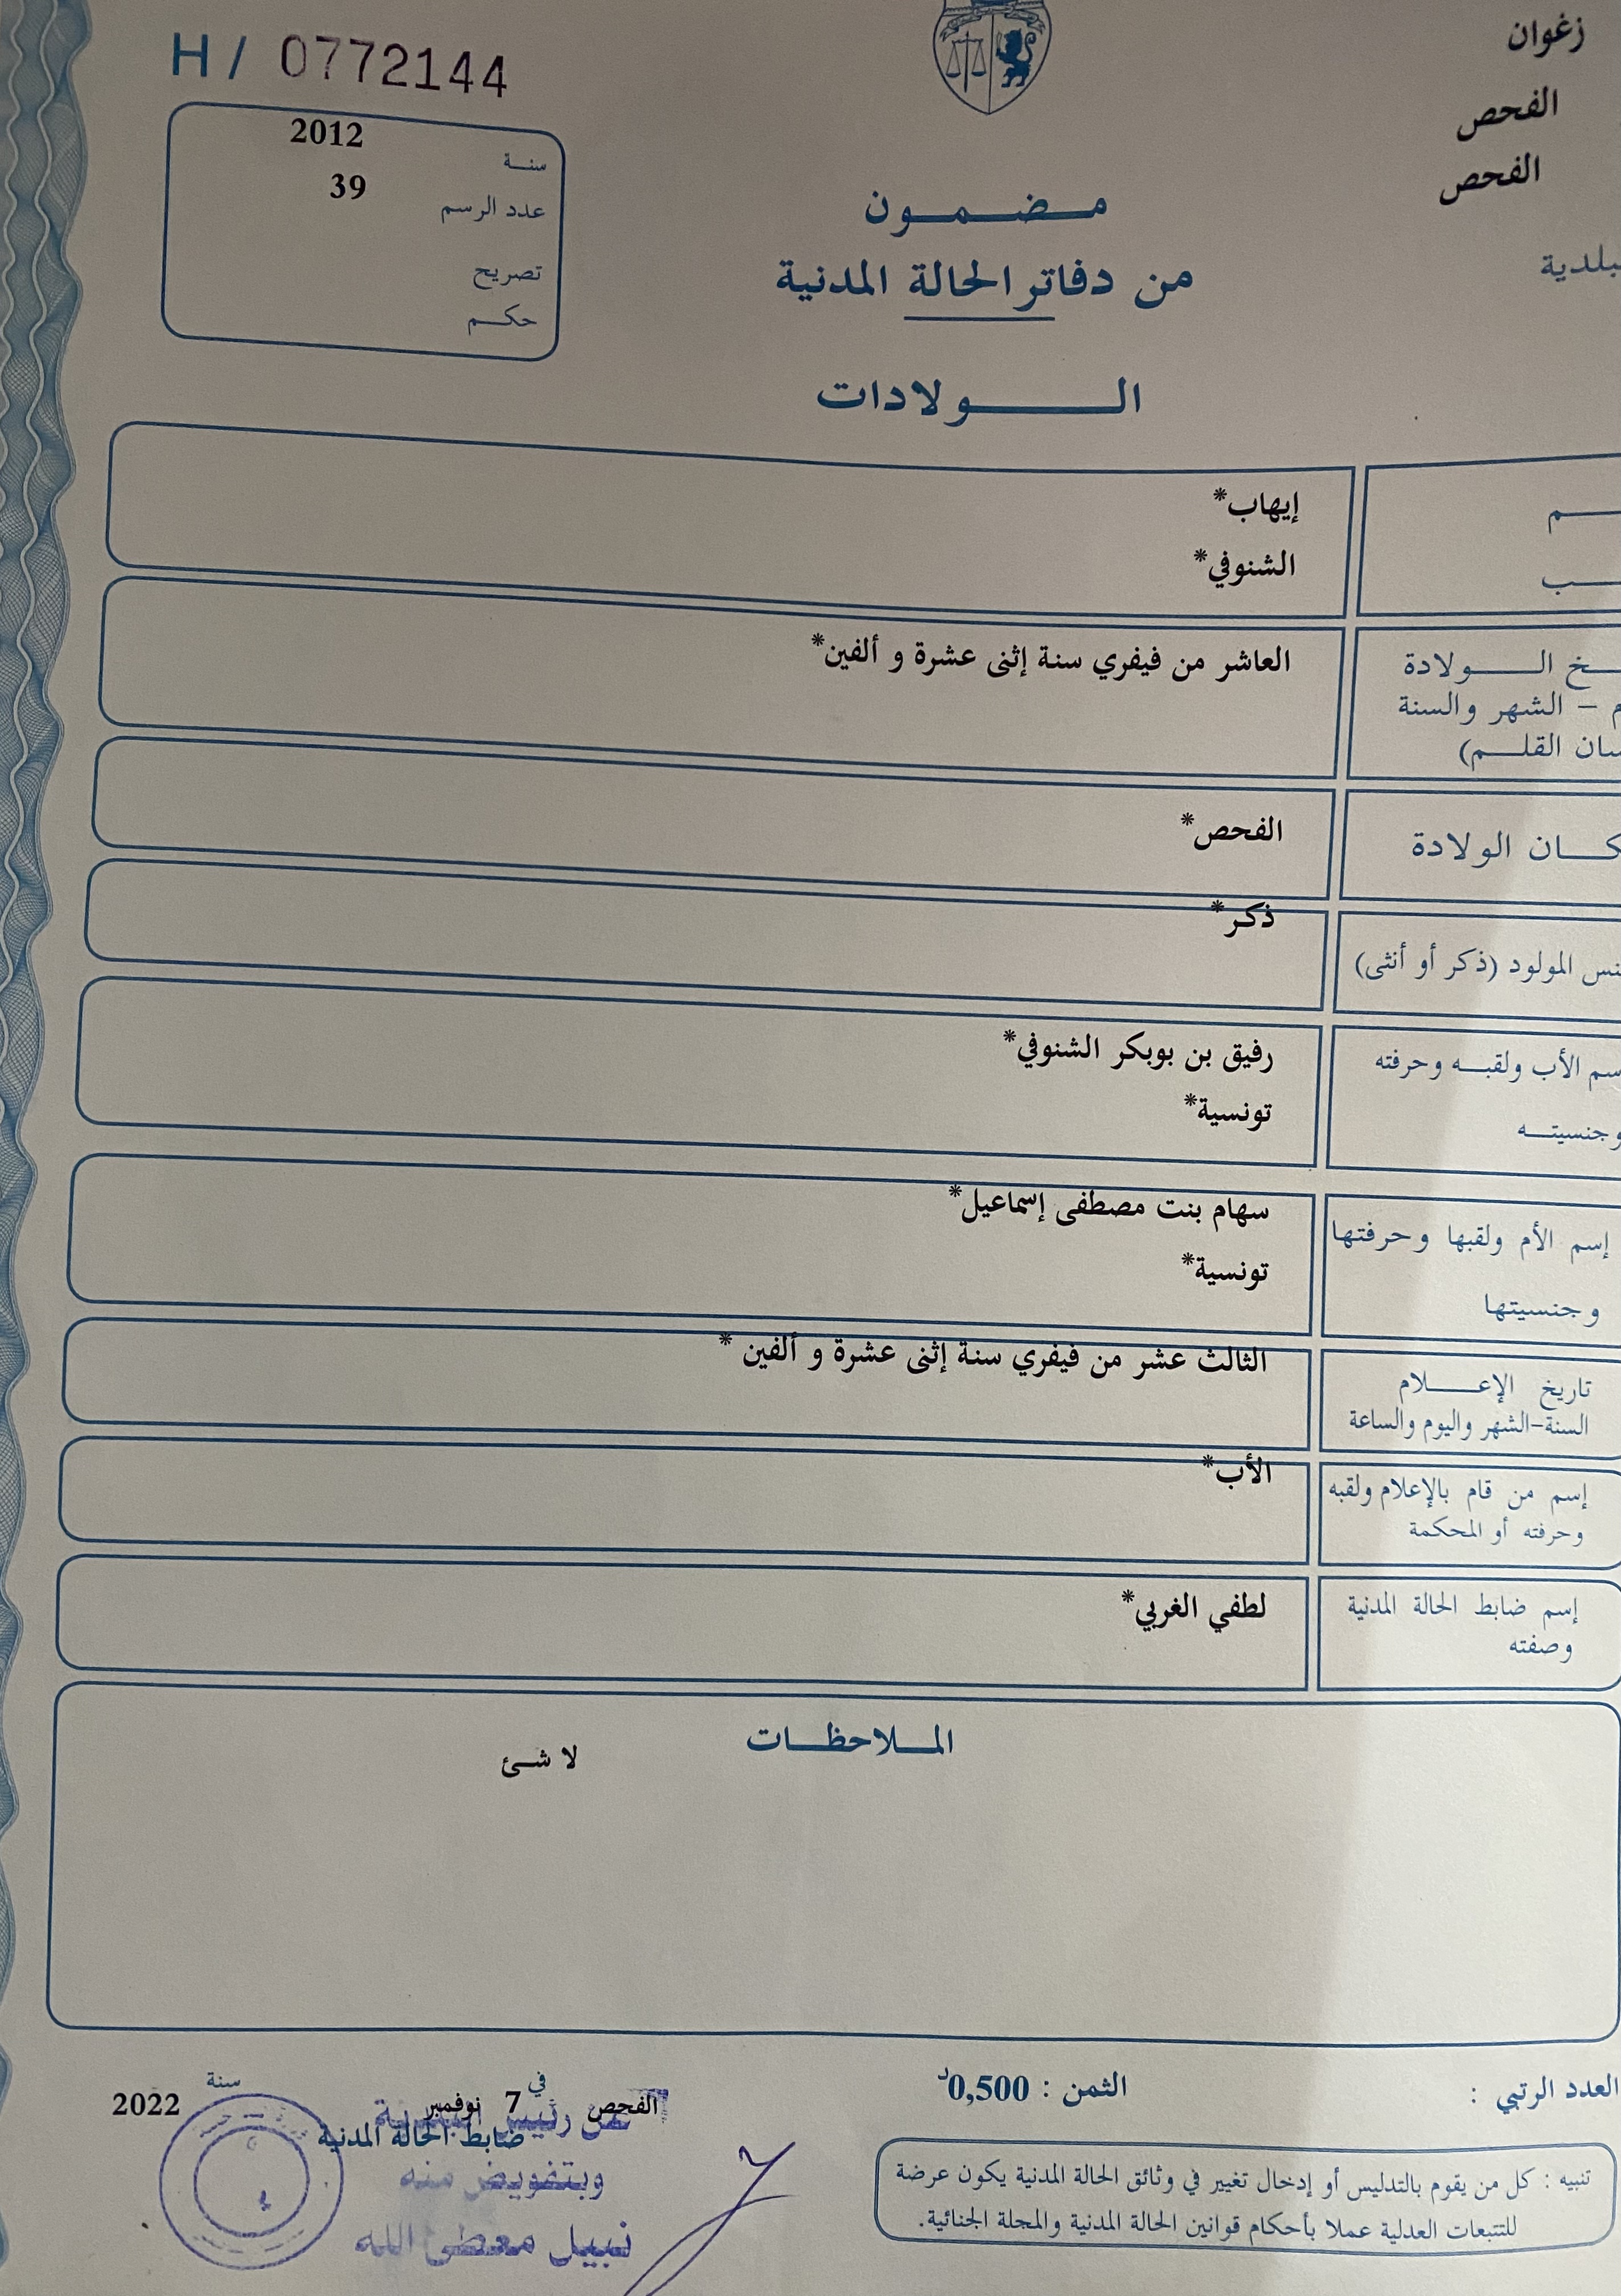 H / 0772144
زغوان
الفحص
الفحص
بلدية
2012
سنة
39
عدد الرسم
تصريح
حكم
مضمون
من دفاتر الحالة المدنية
الولادات
إيهاب*
الشنوفي*
خ الولادة
العاشر من فيفري سنة إثنى عشرة و ألفين*
م – الشهر والسنة
سان القلم)
كان الولادة
الفحص*
نس المولود (ذكر أو أنثى)
ذكر*
سم الأب ولقبه وحرفته
رفيق بن بوبكر الشنوفي*
وجنسيته
تونسية*
إسم الأم ولقبها وحرفتها
سهام بنت مصطفى إسماعيل*
وجنسيتها
تونسية*
تاريخ الإعلام
السنة-الشهر واليوم والساعة
الثالث عشر من فيفري سنة إثنى عشرة و ألفين *
إسم من قام بالإعلام ولقبه
وحرفته أو المحكمة
الأب*
إسم ضابط الحالة المدنية
وصفته
لطفي الغربي*
الملاحظات
لا شئ
العدد الرتبي :
الثمن : 0,500د
الفحص في 7 نوفمبر سنة 2022
ضابط الحالة المدنية
وبتفويض منه
نبيل معطى الله
تنبيه : كل من يقوم بالتدليس أو إدخال تغيير في وثائق الحالة المدنية يكون عرضة
للتتبعات العدلية عملا بأحكام قوانين الحالة المدنية والمجلة الجنائية.